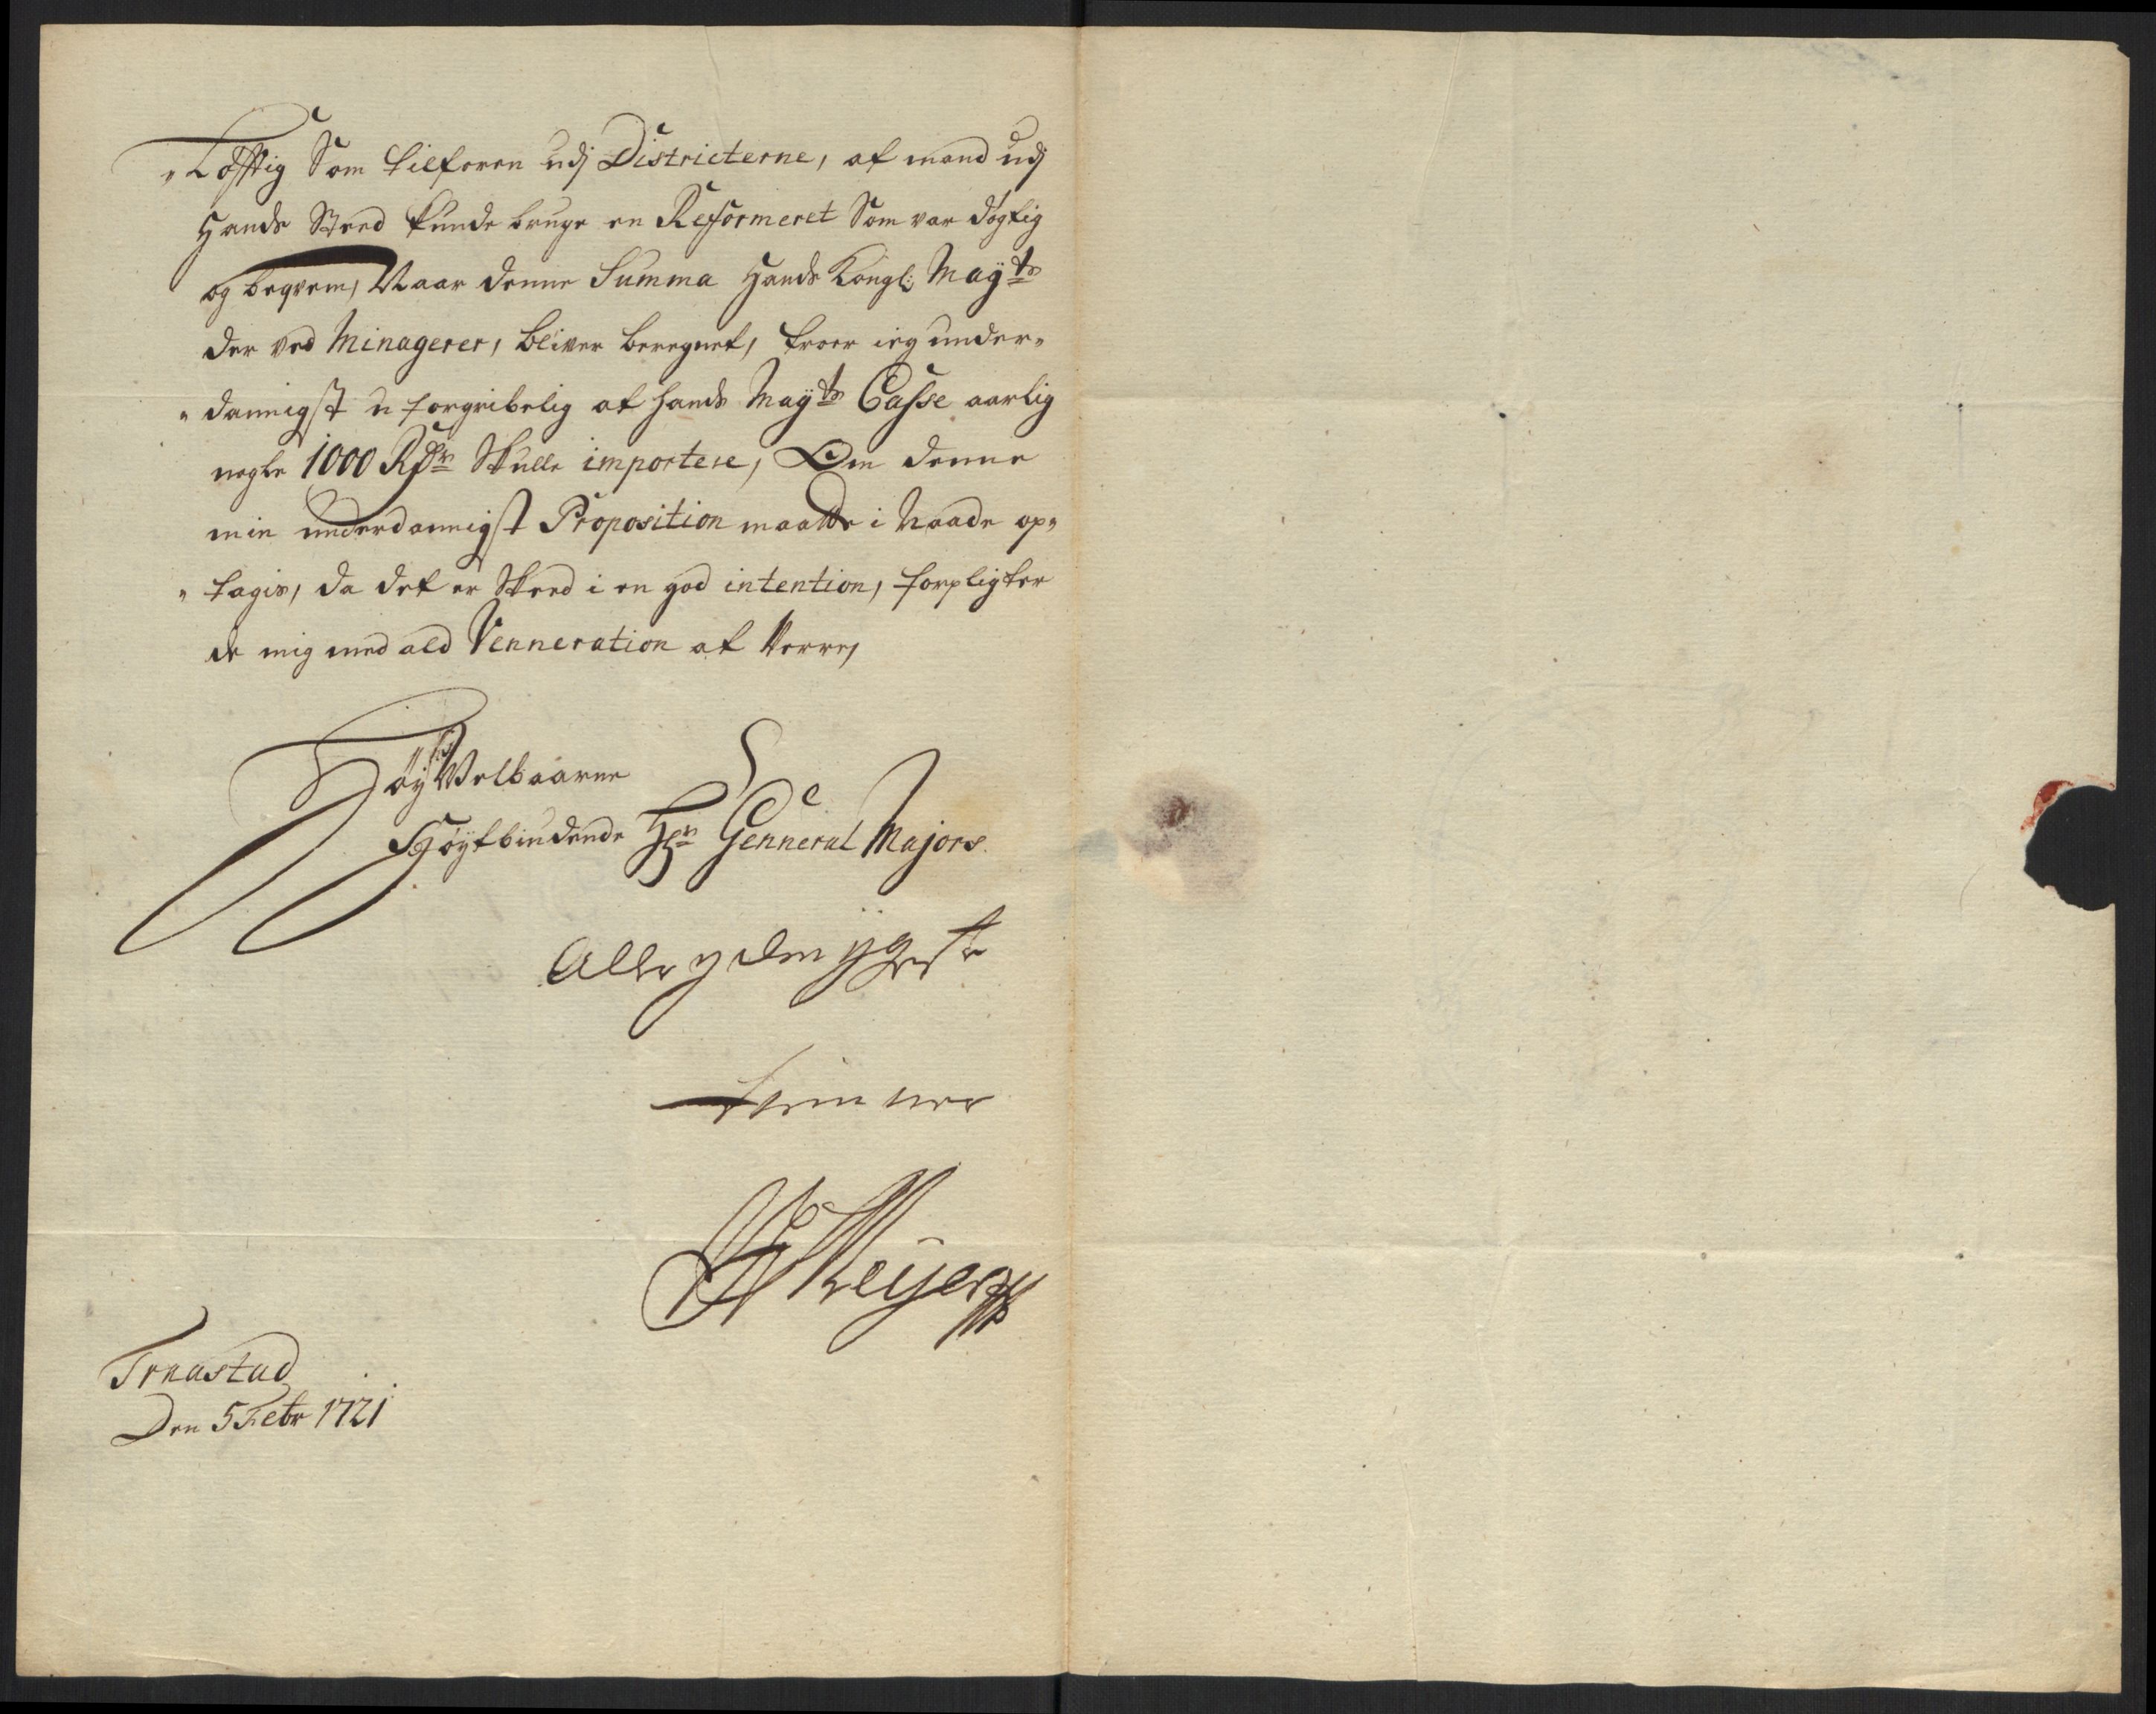 "Løfftig Som tilforen udj Districterne, at mand udj
Hands Steed kunde bruge en Reformeret Som var døgtig
og beqvem, Naar denne Summa Hands Kongl: Maÿts
der ved Minagerer, bliver beregnet, troer ieg under"
"dannigst u forgribelig at hands Maÿts Casse aarlig
nogle 1000 Rdr Skulle importere, Om denne
min underdannigst Proposition maatte i Naade op"
"tagis, da det er Skeed i en god intention, forpligter
de mig med ald Venneration at Verre,
HøÿVelbaarne
Høÿtbiudende Hr Genneral Majors
Aller ydmÿgste
tienner
Meÿer
Trustad
Den 5 Febr 1721